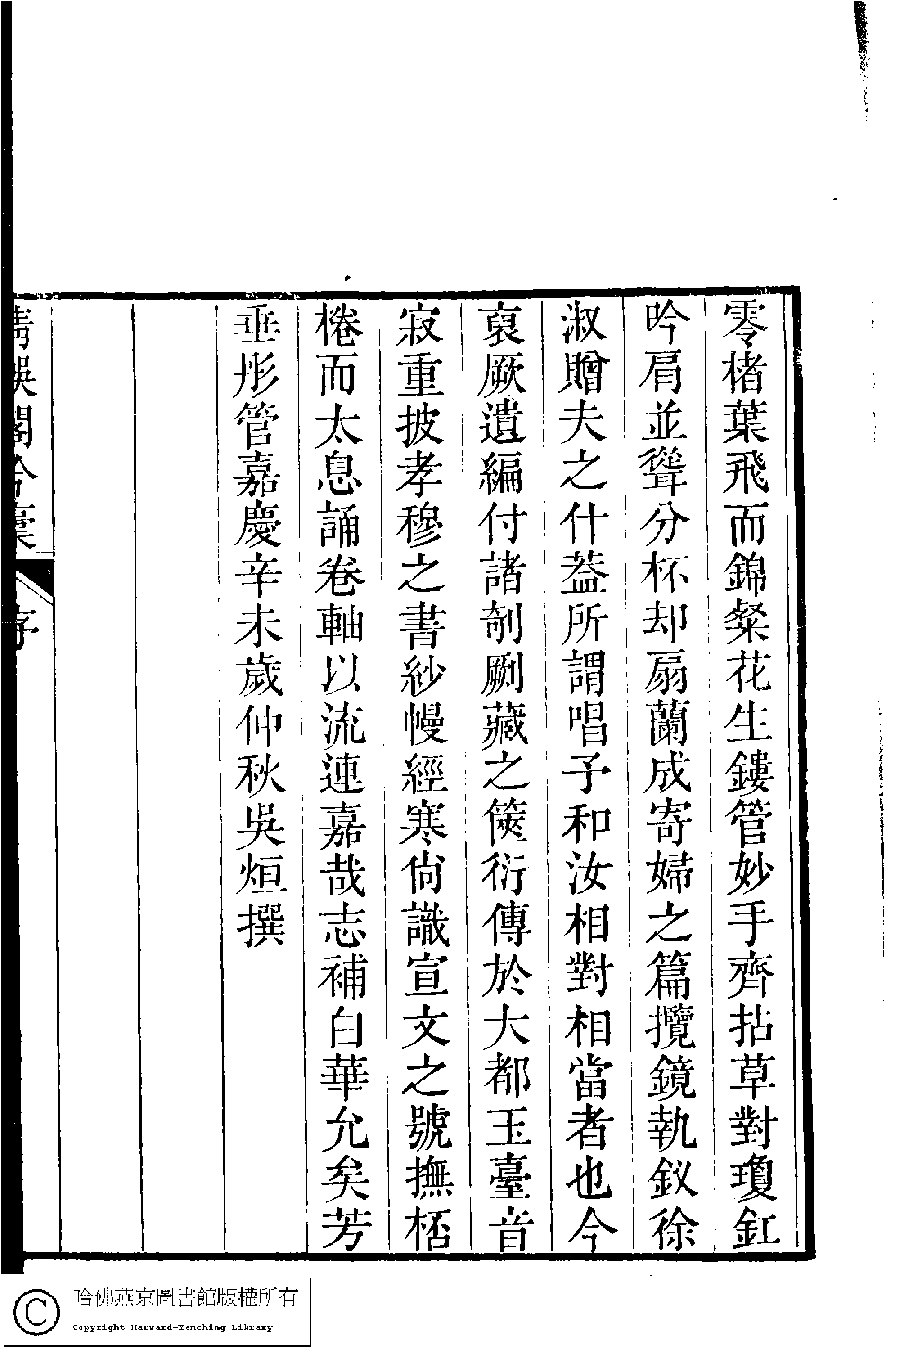 零楮葉飛而錦粲花生鏤管妙手齊拈草對瓊釭
吟肩並聳分杯却扇蘭成寄婦之篇攬鏡執釵徐
淑贈夫之什葢所謂唱予和汝相對相當者也今
裒厥遺編付諸剞劂藏之篋衍傳於大都玉臺音
寂重披孝穆之書紗幔經寒尙識宣文之號撫桮
棬而太息誦卷軸以流連嘉哉志補白華允矣芳
垂彤管嘉慶辛未歲仲秋吳烜撰
閣吟稾
序
哈佛燕京圖書館版權所有
Copyright Harvard-Yenching Library